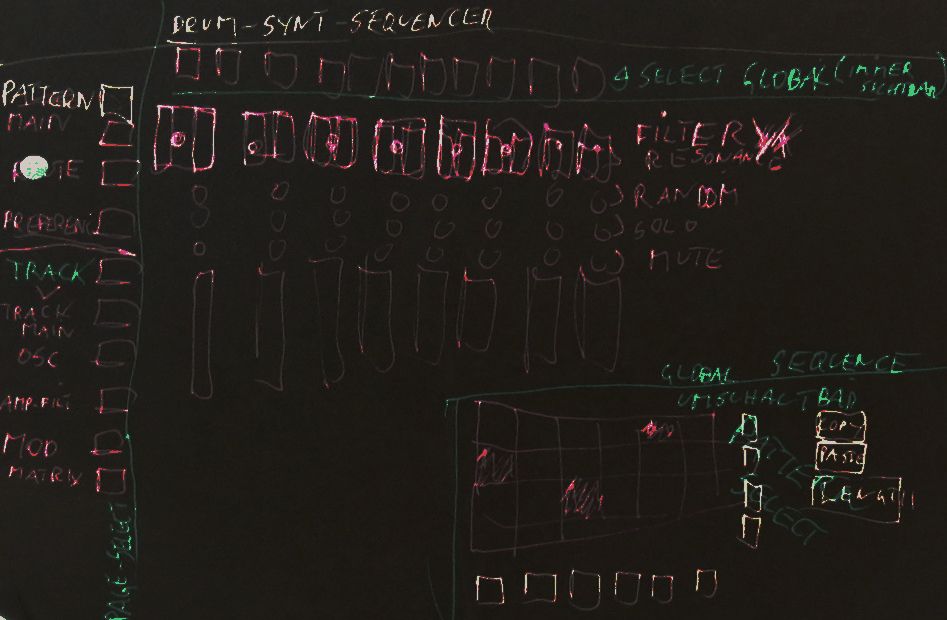 DRUM-SYNT-SEQUENCER
SELECT GLOBAL (IMMER
SICHTBAR)
PATTERN
MAIN
PREFERENC
TRACK
TRACK
MAIN
OSC
AMP-FILT
MOD
MATRIX
PAGE-SELECT
FILTER
RESONANC
RANDOM
SOLO
MUTE
GLOBAL SEQUENCE
UMSCHALTBAR
PATTERN
SELECT
COPY
PASTE
LENGTH